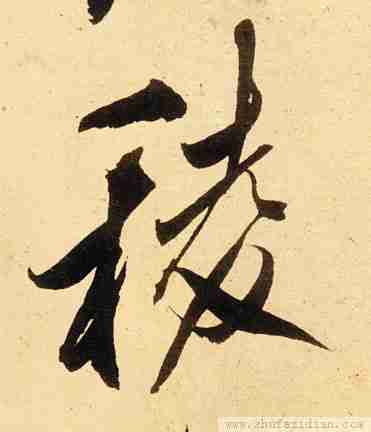 稜
www.shufazidian.com